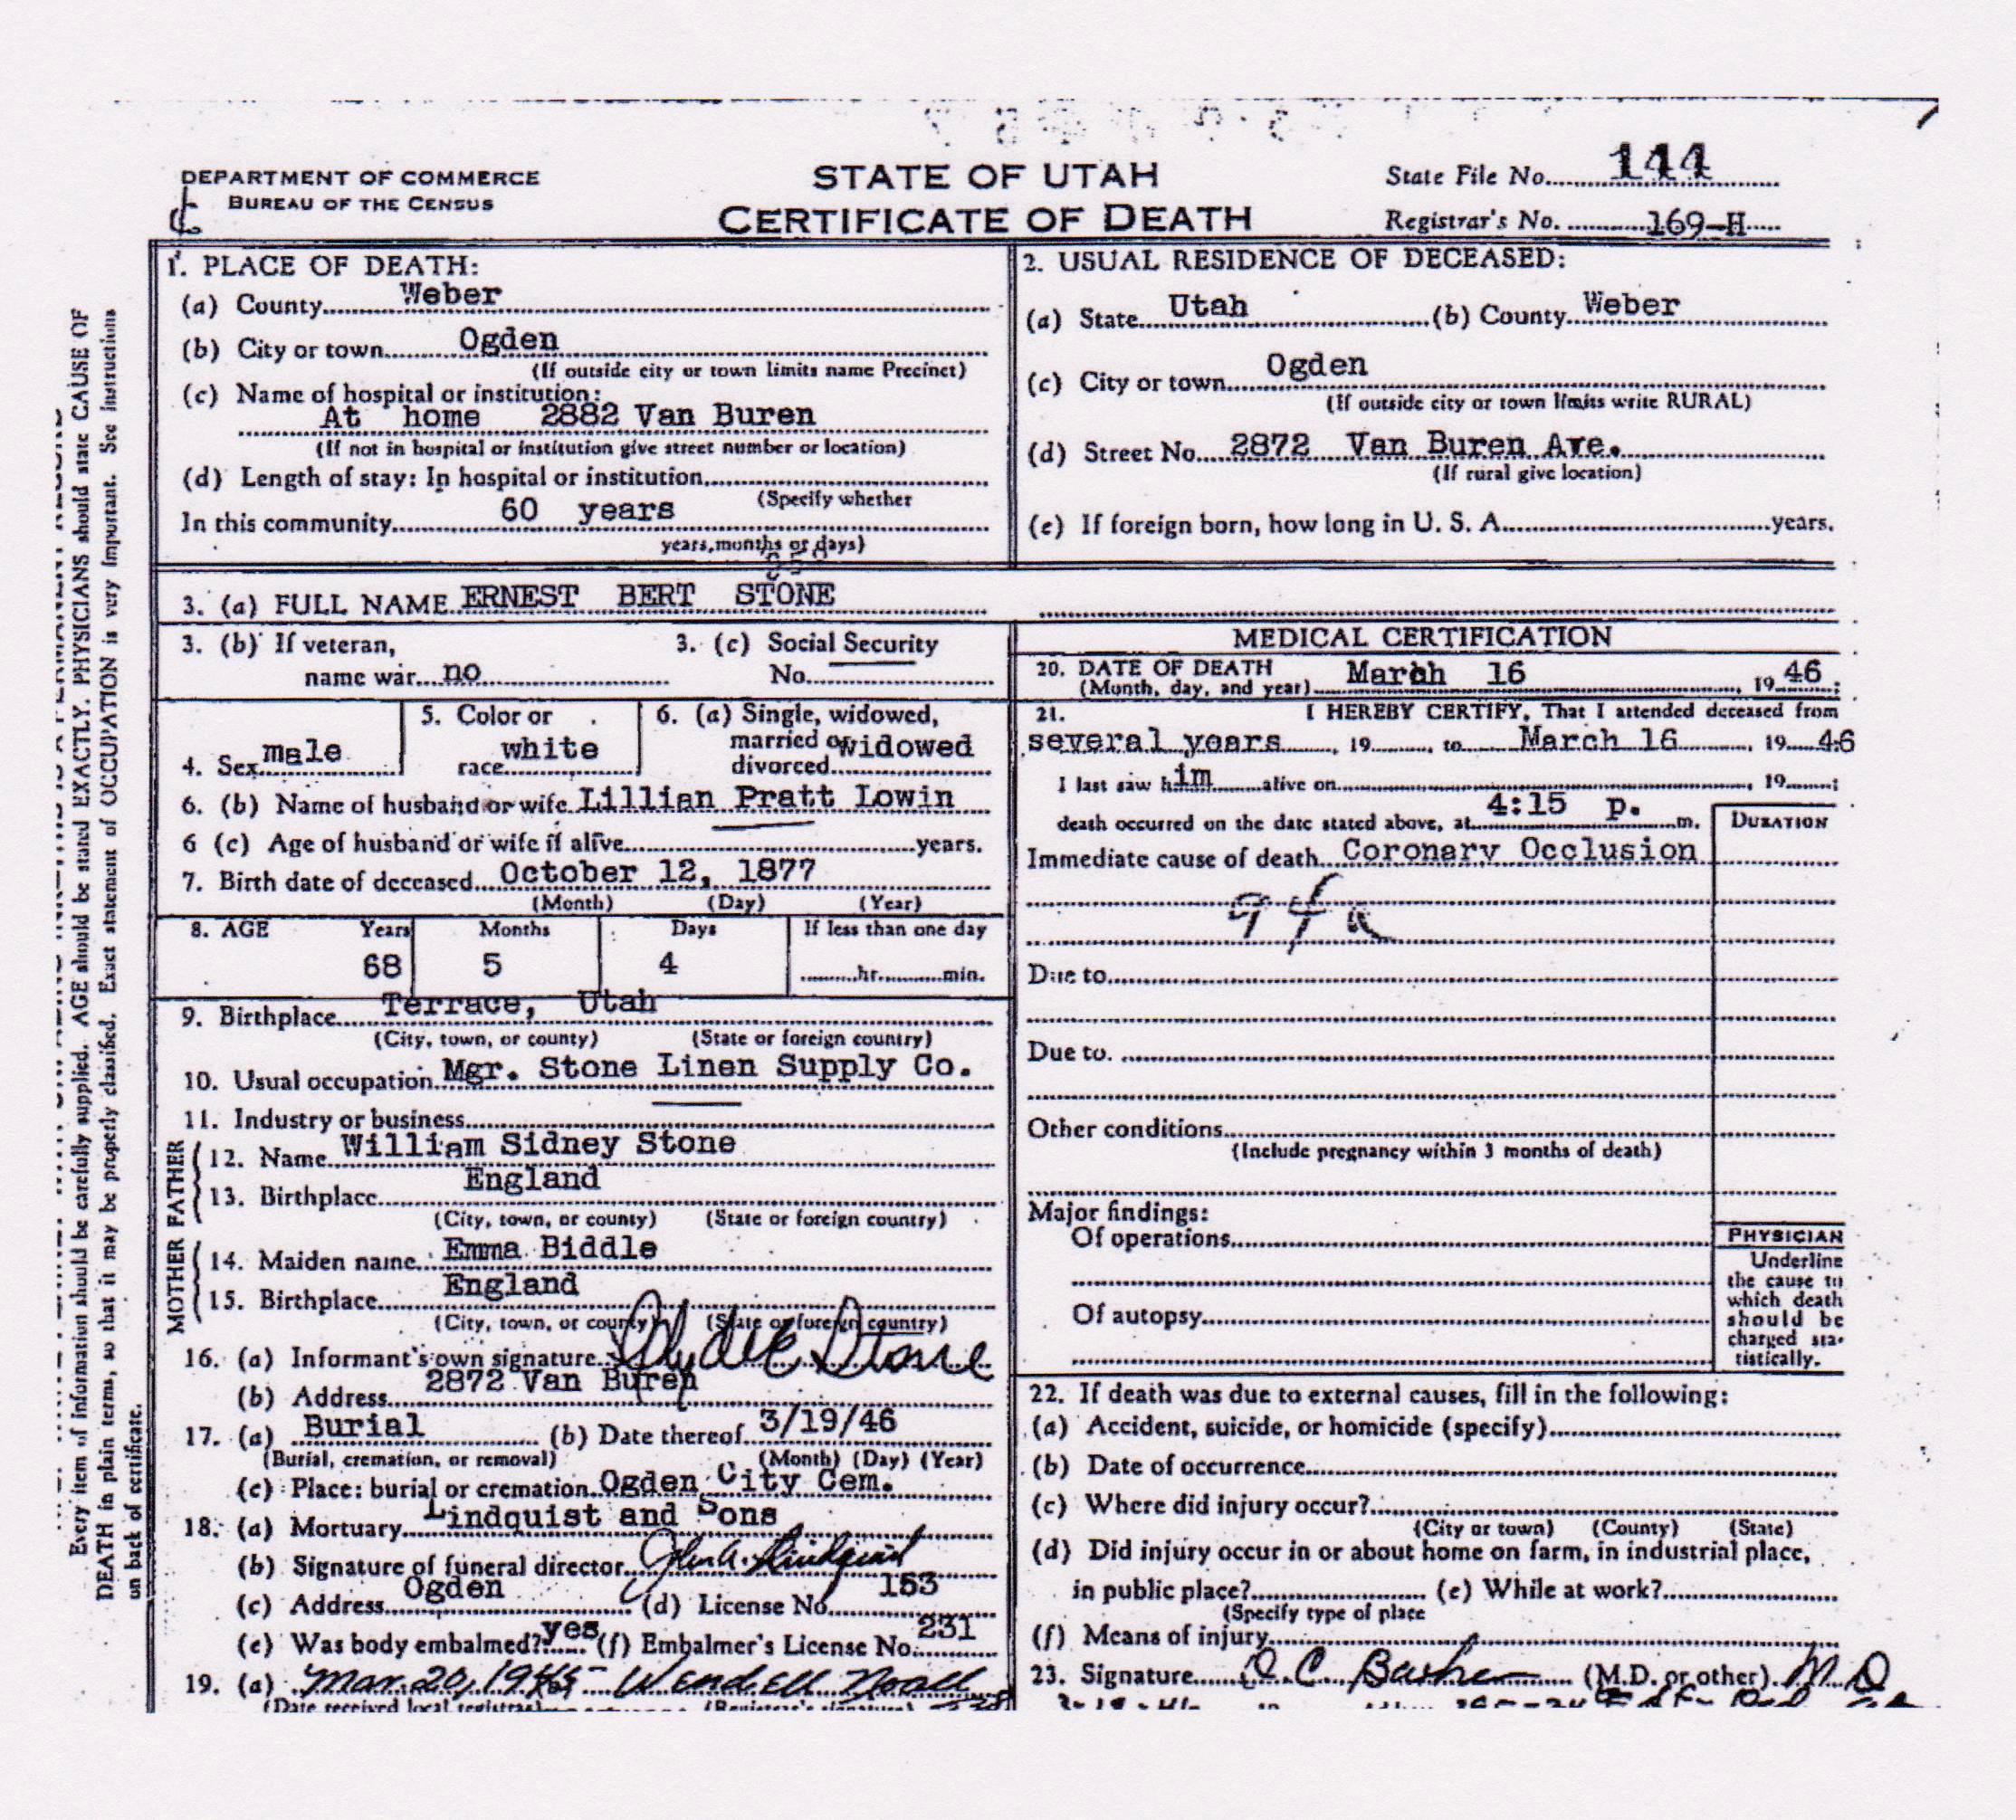 DEPARTMENT OF COMMERCE
BUREAU OF THE CENSUS
STATE OF UTAH
CERTIFICATE OF DEATH
State File No. 144
Registrar's No. 169-H
1. PLACE OF DEATH:
(a) County Weber
(b) City or town Ogden
(If outside city or town limits name Precinct)
(c) Name of hospital or institution:
At home 2882 Van Buren
(If not in hospital or institution give street number or location)
(d) Length of stay: In hospital or institution
(Specify whether
In this community 60 years
years, months or days)
2. USUAL RESIDENCE OF DECEASED:
(a) State Utah (b) County Weber
(c) City or town Ogden
(If outside city or town limits write RURAL)
(d) Street No. 2872 Van Buren Ave.
(If rural give location)
(e) If foreign born, how long in U. S. A. years.
3. (a) FULL NAME ERNEST BERT STONE
3. (b) If veteran,
name war no
3. (c) Social Security
No.
4. Sex male
5. Color or
race white
6. (a) Single, widowed,
married or widowed
divorced
6. (b) Name of husband or wife Lillian Pratt Lowin
6 (c) Age of husband or wife if alive years.
7. Birth date of deceased October 12, 1877
(Month) (Day) (Year)
8. AGE Years Months Days If less than one day
68 5 4 hr. min.
9. Birthplace Terrace, Utah
(City, town, or county) (State or foreign country)
10. Usual occupation Mgr. Stone Linen Supply Co.
11. Industry or business
FATHER
12. Name William Sidney Stone
13. Birthplace England
(City, town, or county) (State or foreign country)
MOTHER
14. Maiden name Emma Biddle
15. Birthplace England
(City, town, or county) (State or foreign country)
16. (a) Informant's own signature Clyde Stone
(b) Address 2872 Van Buren
17. (a) Burial (b) Date thereof 3/19/46
(Burial, cremation, or removal) (Month) (Day) (Year)
(c) Place: burial or cremation Ogden City Cem.
18. (a) Mortuary Lindquist and Sons
(b) Signature of funeral director Lindquist
(c) Address Ogden (d) License No. 153
(e) Was body embalmed? yes (f) Embalmer's License No. 231
19. (a) Mar. 20, Wendell Noall
(Date received local registrar) (Registrar's signature)
MEDICAL CERTIFICATION
20. DATE OF DEATH March 16
(Month, day, and year) 19 46;
21. I HEREBY CERTIFY, That I attended deceased from
several years, 19 , to March 16, 19 46
I last saw h im alive on , 19 ;
death occurred on the date stated above, at 4:15 p. m.
DURATION
Immediate cause of death Coronary Occlusion
Due to
Due to.
Other conditions
(Include pregnancy within 3 months of death)
Major findings:
Of operations
Of autopsy
PHYSICIAN
Underline
the cause to
which death
should be
charged sta-
tistically.
22. If death was due to external causes, fill in the following:
(a) Accident, suicide, or homicide (specify)
(b) Date of occurrence
(c) Where did injury occur?
(City or town) (County) (State)
(d) Did injury occur in or about home on farm, in industrial place,
in public place? (e) While at work?
(Specify type of place
(f) Means of injury
23. Signature (M.D. or other) M D
Every item of information should be carefully supplied. AGE should be stated EXACTLY. PHYSICIANS should state CAUSE OF
DEATH in plain terms, so that it may be properly classified. Exact statement of OCCUPATION is very important. See instructions
on back of certificate.